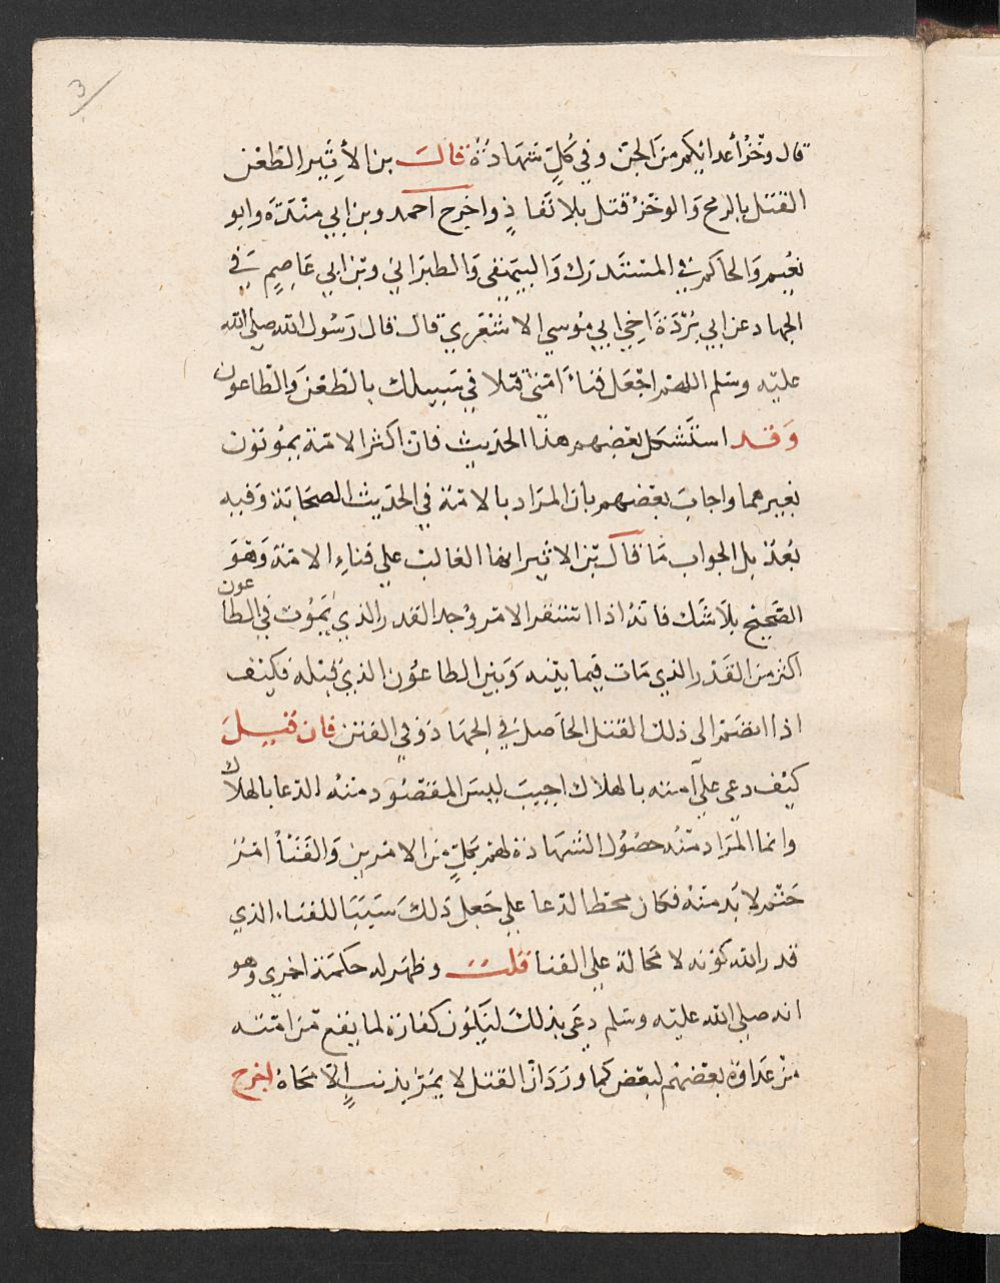 3
قال وخْزُ أعدائكم من الجن وفي كُلٍّ شهَادَةٌ قالَ بن الأثِير الطَّعْن
القتل بالرمح وَالوخْزُ قتل بلا نَفاذٍ واخرج احمد وبن ابي منْدَة وابو
نعُيم وَالحاكم في المسْتَدرَك وَالبيهقى وَالطبرَاني وبْن ابي عَاصِم في
الجهاد عن ابي بُرْدَة اخي ابي موُسي الاشْعَري قال قال رَسُول الله صلى الله
عليْه وسَلم اللهم اجْعَل فنَاءَ امتي قتلا في سَبيلك بالطعْن وَالطاعون
وَقد استَشكل بعْضهم هذا الحَديث فان اكثر الامّة يموُتوُن
بغيرهما واجابَ بعْضهم بان المرَاد بالامّة في الحَديث الصحَابَة وَفيه
بُعْدٌ بل الجواب مَا قال بْن الاثير انها الغالبْ علي فناءِ الامّة وَهوَ
الصَّحِيح بلَا شَك فانهُ اذا استقر الامْر وُجد القدر الذي يَموُت في الطاعون
اكثر من القَدْر الذي مَات فيما بيْنه وَبيْن الطاعوُن الذي قبْله فكيْف
اذا انضَمّ الى ذلك القتل الحَاصل في الجهَاد وَفي الفتن فان قيْلَ
كيْف دعى علي امته بالهلاك اجيبَ ليسَ المقصُود منْه الدعا بالهلاك
وانما المرَاد منْهُ حصُوُل الشهَادة لهم بكلٍّ من الامْرين وَالفَنَأُ امْرٌ
حَتْم لا بُد منْه فكان محَط الدعا علي جَعل ذَلكَ سَببَا للفناء الذي
قدر الله كوْنه لا مَحالة علي الفنا قلتَ وظهَر له حكمَة اخري وهو
انه صلي الله عليْه وسَلم دعَى بذلكَ ليَكوُن كفارَة لما يَقع منْ امّته
منْ عَدَاوَة بعْضهم لبعْض كما وَرَدَ انْ القتل لا يَمُرّ بذنبٍ الّا محَاهُ اخرج